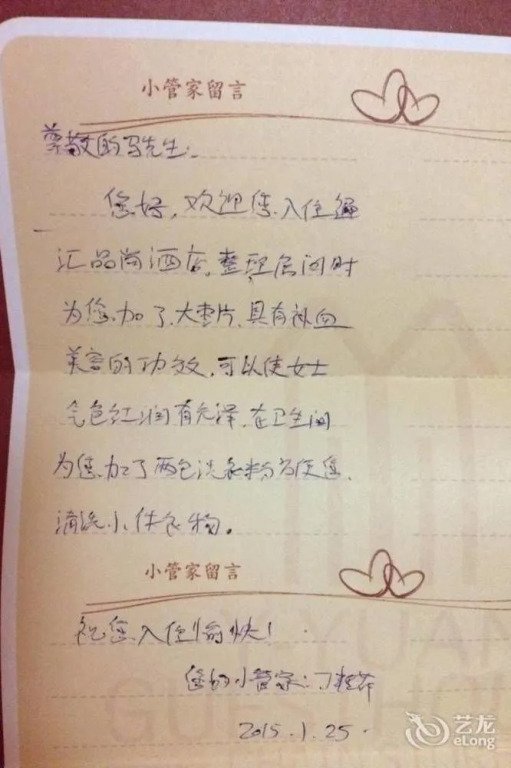 小管家留言
尊敬的马先生:
您好,欢迎您入住通
汇品尚酒店,整理房间时
为您加了大枣片,具有补血
美容的功效,可以使女士
气色红润有光泽,在卫生间
为您加了两包洗衣粉方便您
清洗小件衣物。
小管家留言
祝您入住愉快!
您的小管家:丁
2015.1.25.
艺龙
eLong